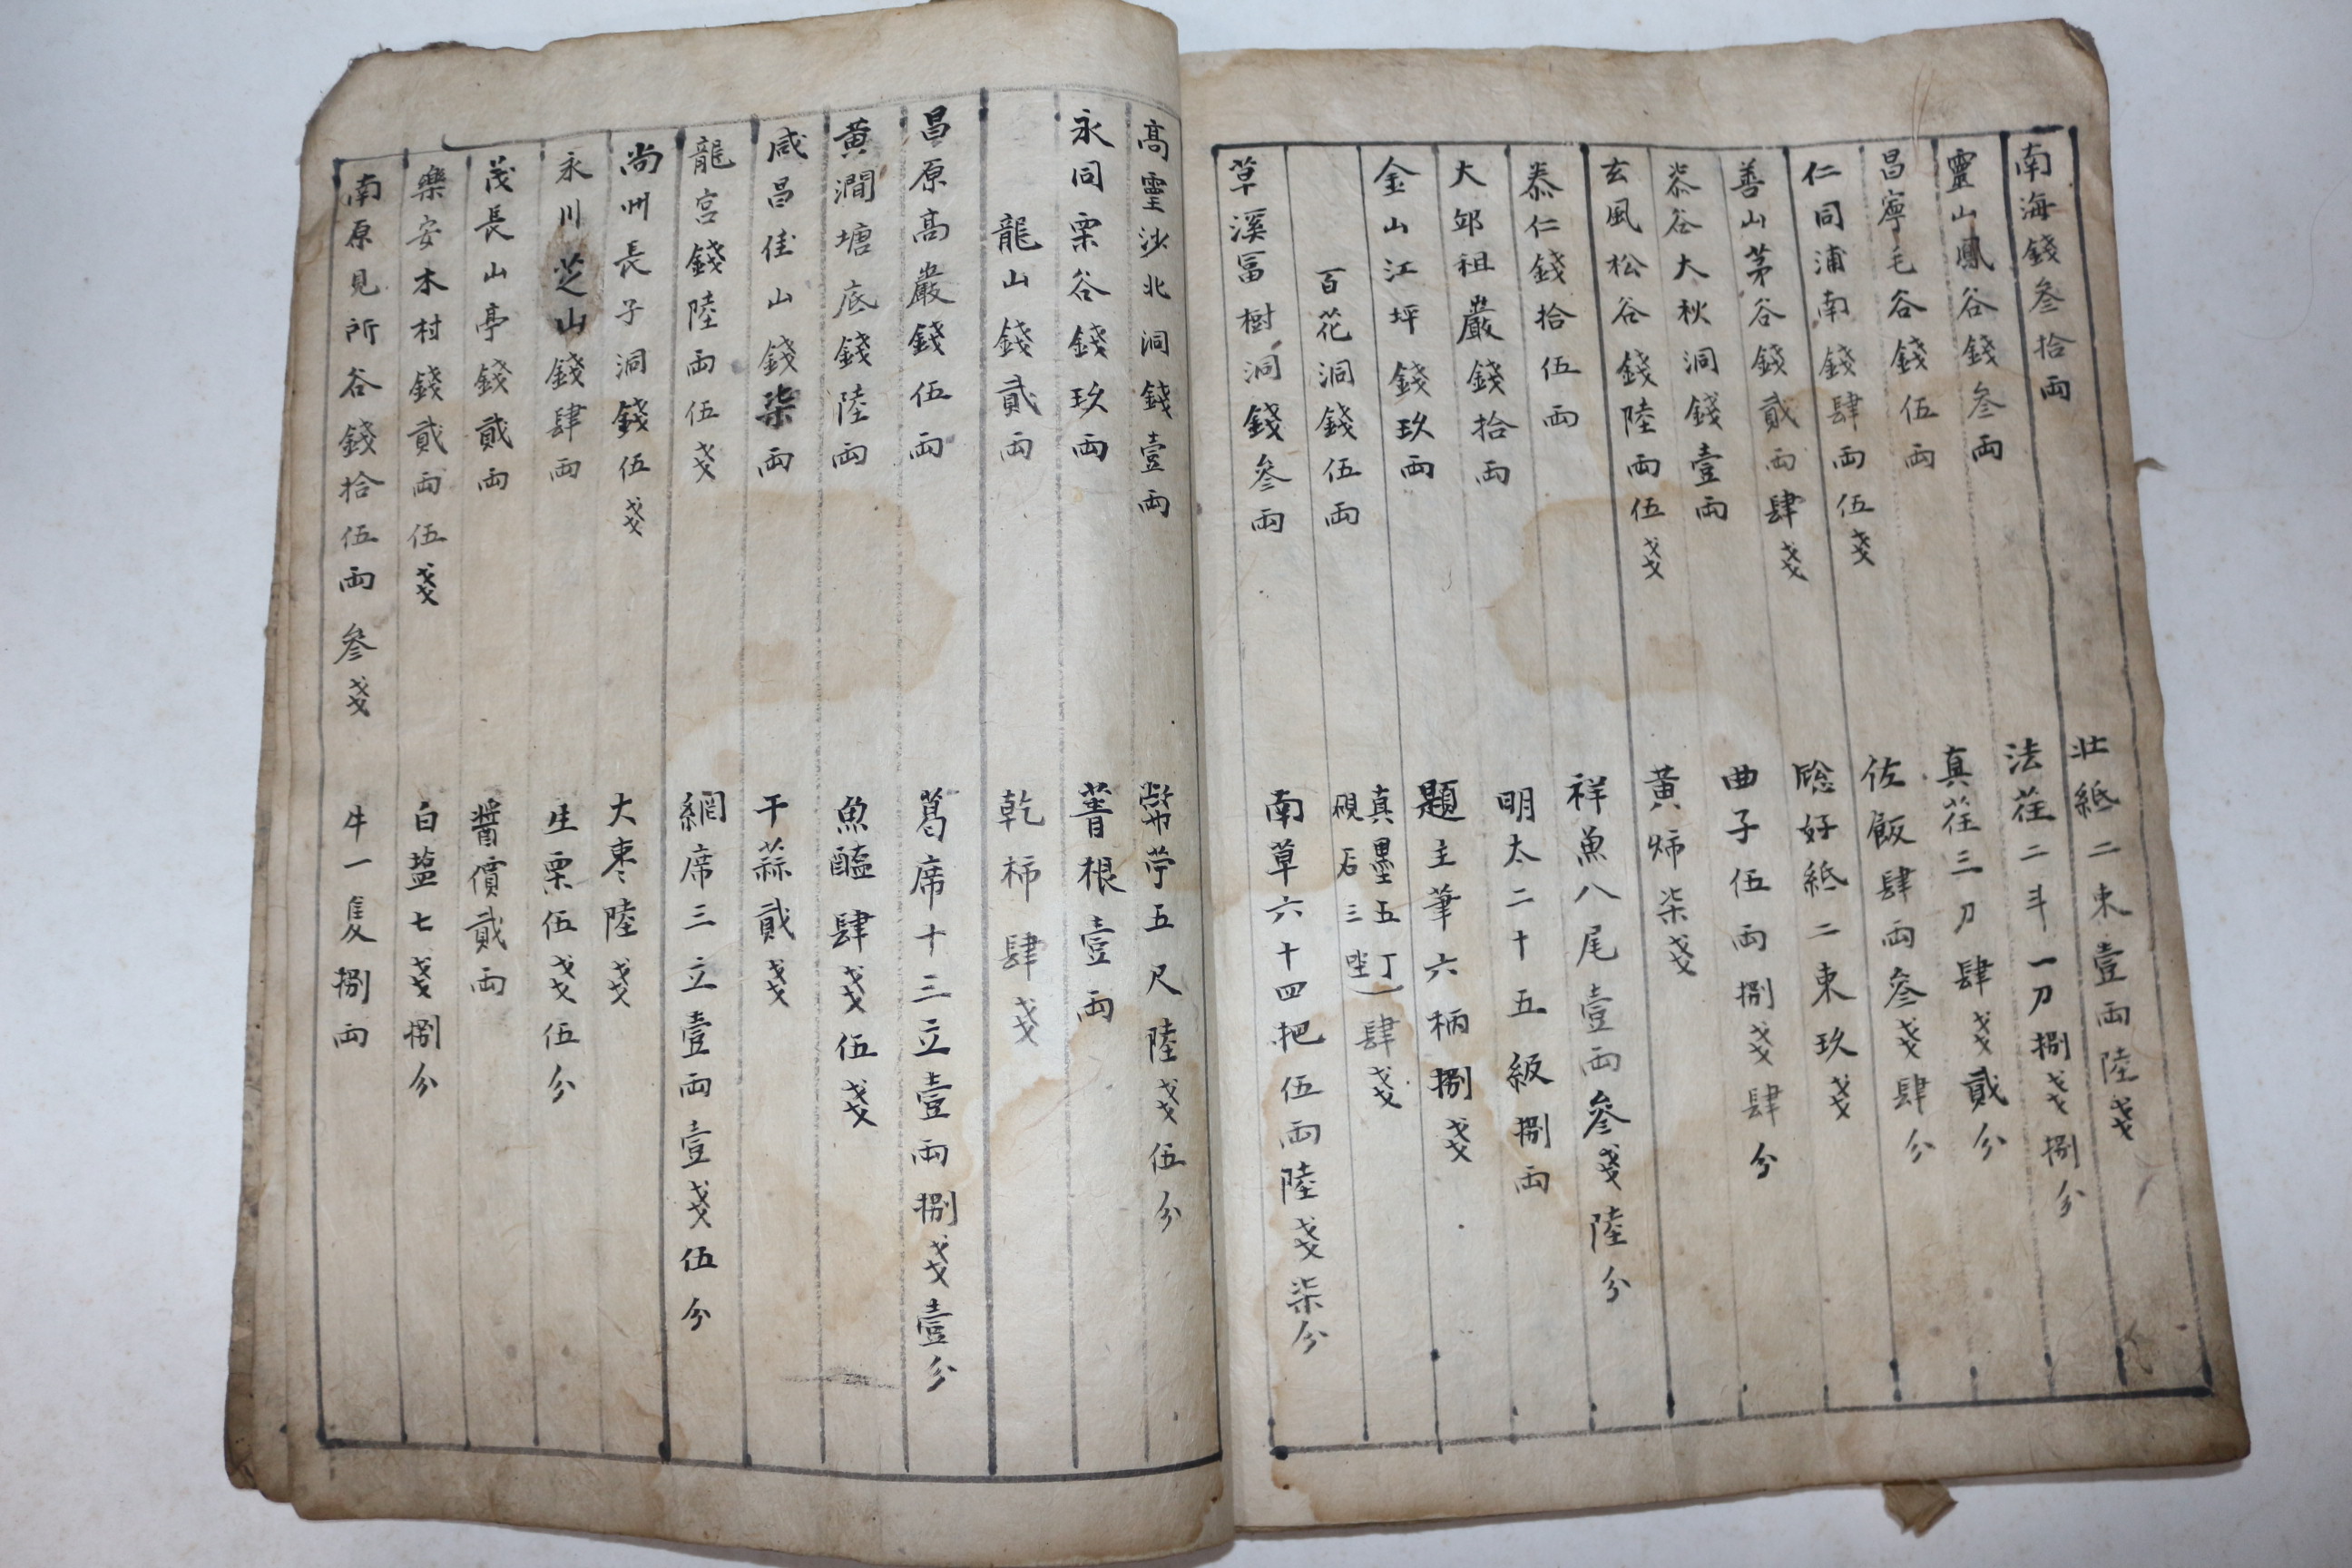 南海錢叄拾両 壮紙二束壹両陸戔
靈山鳳谷錢叄両 法荏二斗一刀捌戔捌分
昌寧毛谷錢伍両 真荏三刀肆戔貳分
仁同浦南錢肆両伍戔 佐飯肆両叄戔肆分
善山茅谷錢貳両肆戔 好紙二東玖戔
漆谷大秋洞錢壹両 曲子伍両捌戔肆分
玄風松谷錢陸両伍戔 黃柿柒戔
泰仁錢拾伍両 祥魚八尾壹両叄戔陸分
大邱祖嚴錢拾両 明太二十五級捌両
金山江坪錢玖両 題主筆六柄捌戔
百花洞錢伍両 真墨五丁 硯石三坐 肆戔
草溪冨樹洞錢叄両 南草六十四把伍両陸戔柒分
高靈沙北洞錢壹両 幣苧五尺陸戔伍分
永同栗谷錢玖両 菁根壹両
龍山錢貳両 乾柿肆戔
昌原高巖錢伍両 葛席十三立壹両捌戔壹分
黄澗塘底錢陸両 魚醢肆戔伍戔
咸昌佳山錢柒両 干蒜貳戔
龍宮錢陸両伍戔 網席三立壹両壹戔伍分
尚州長子洞錢伍戔 大枣陸戔
永川芝山錢肆両 生栗伍戔伍分
茂長山亭錢貳両 醬價貳両
樂安木村錢貳両伍戔 白盐七戔捌分
南原見所谷錢拾伍両叄戔 牛一隻捌両